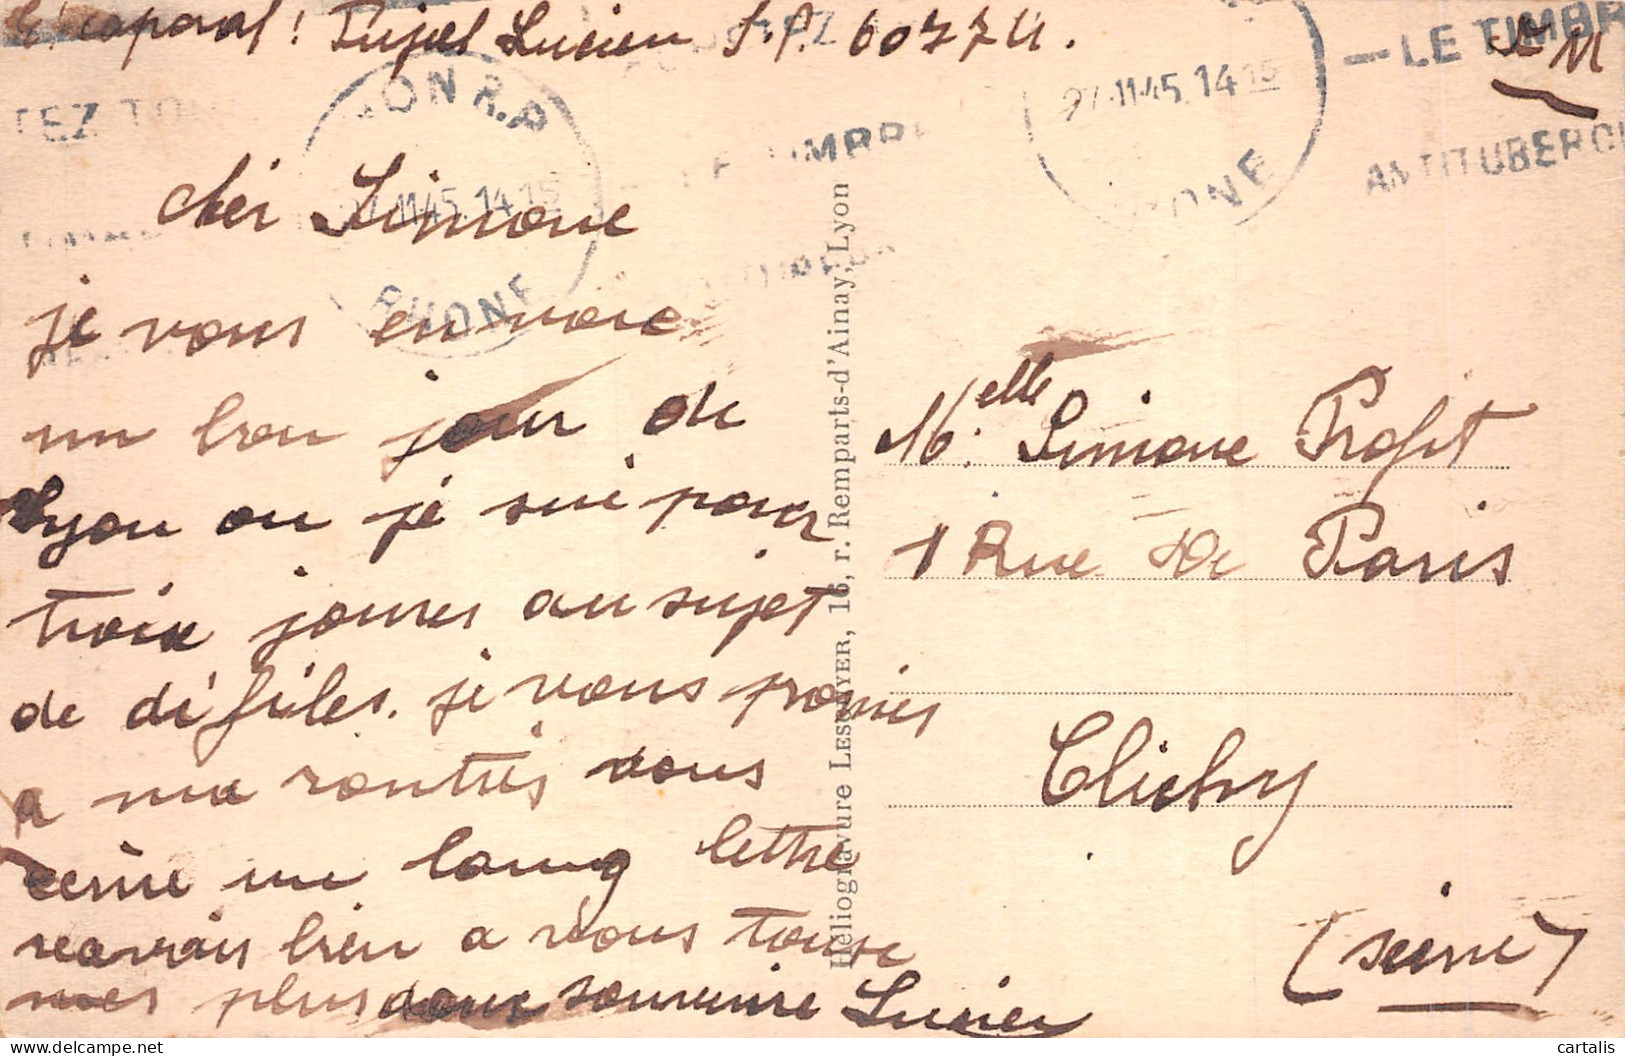 caporal! Pujol Lucien S.P. 60774.
LYON R.P
27-11-45.14 15
RHONE
27-11-45.14 15
RHONE
- LE TIMBR
ANTITUBERCU
F.M
cher Simone
je vous envoie
un bon jour de
Lyon ou je sui pour
troix joures au sujet
de défiles. je vous promes
a ma rontres vous
ecrire un loung lettre
reavoir bien a vous touse
mes plus doux souvenire Lucien
Héliogravure LESCUYER, 16, r. Remparts-d'Ainay, Lyon
Melle Simone Profit
1 Rue De Paris
Clichy
(Seine)
cartalis